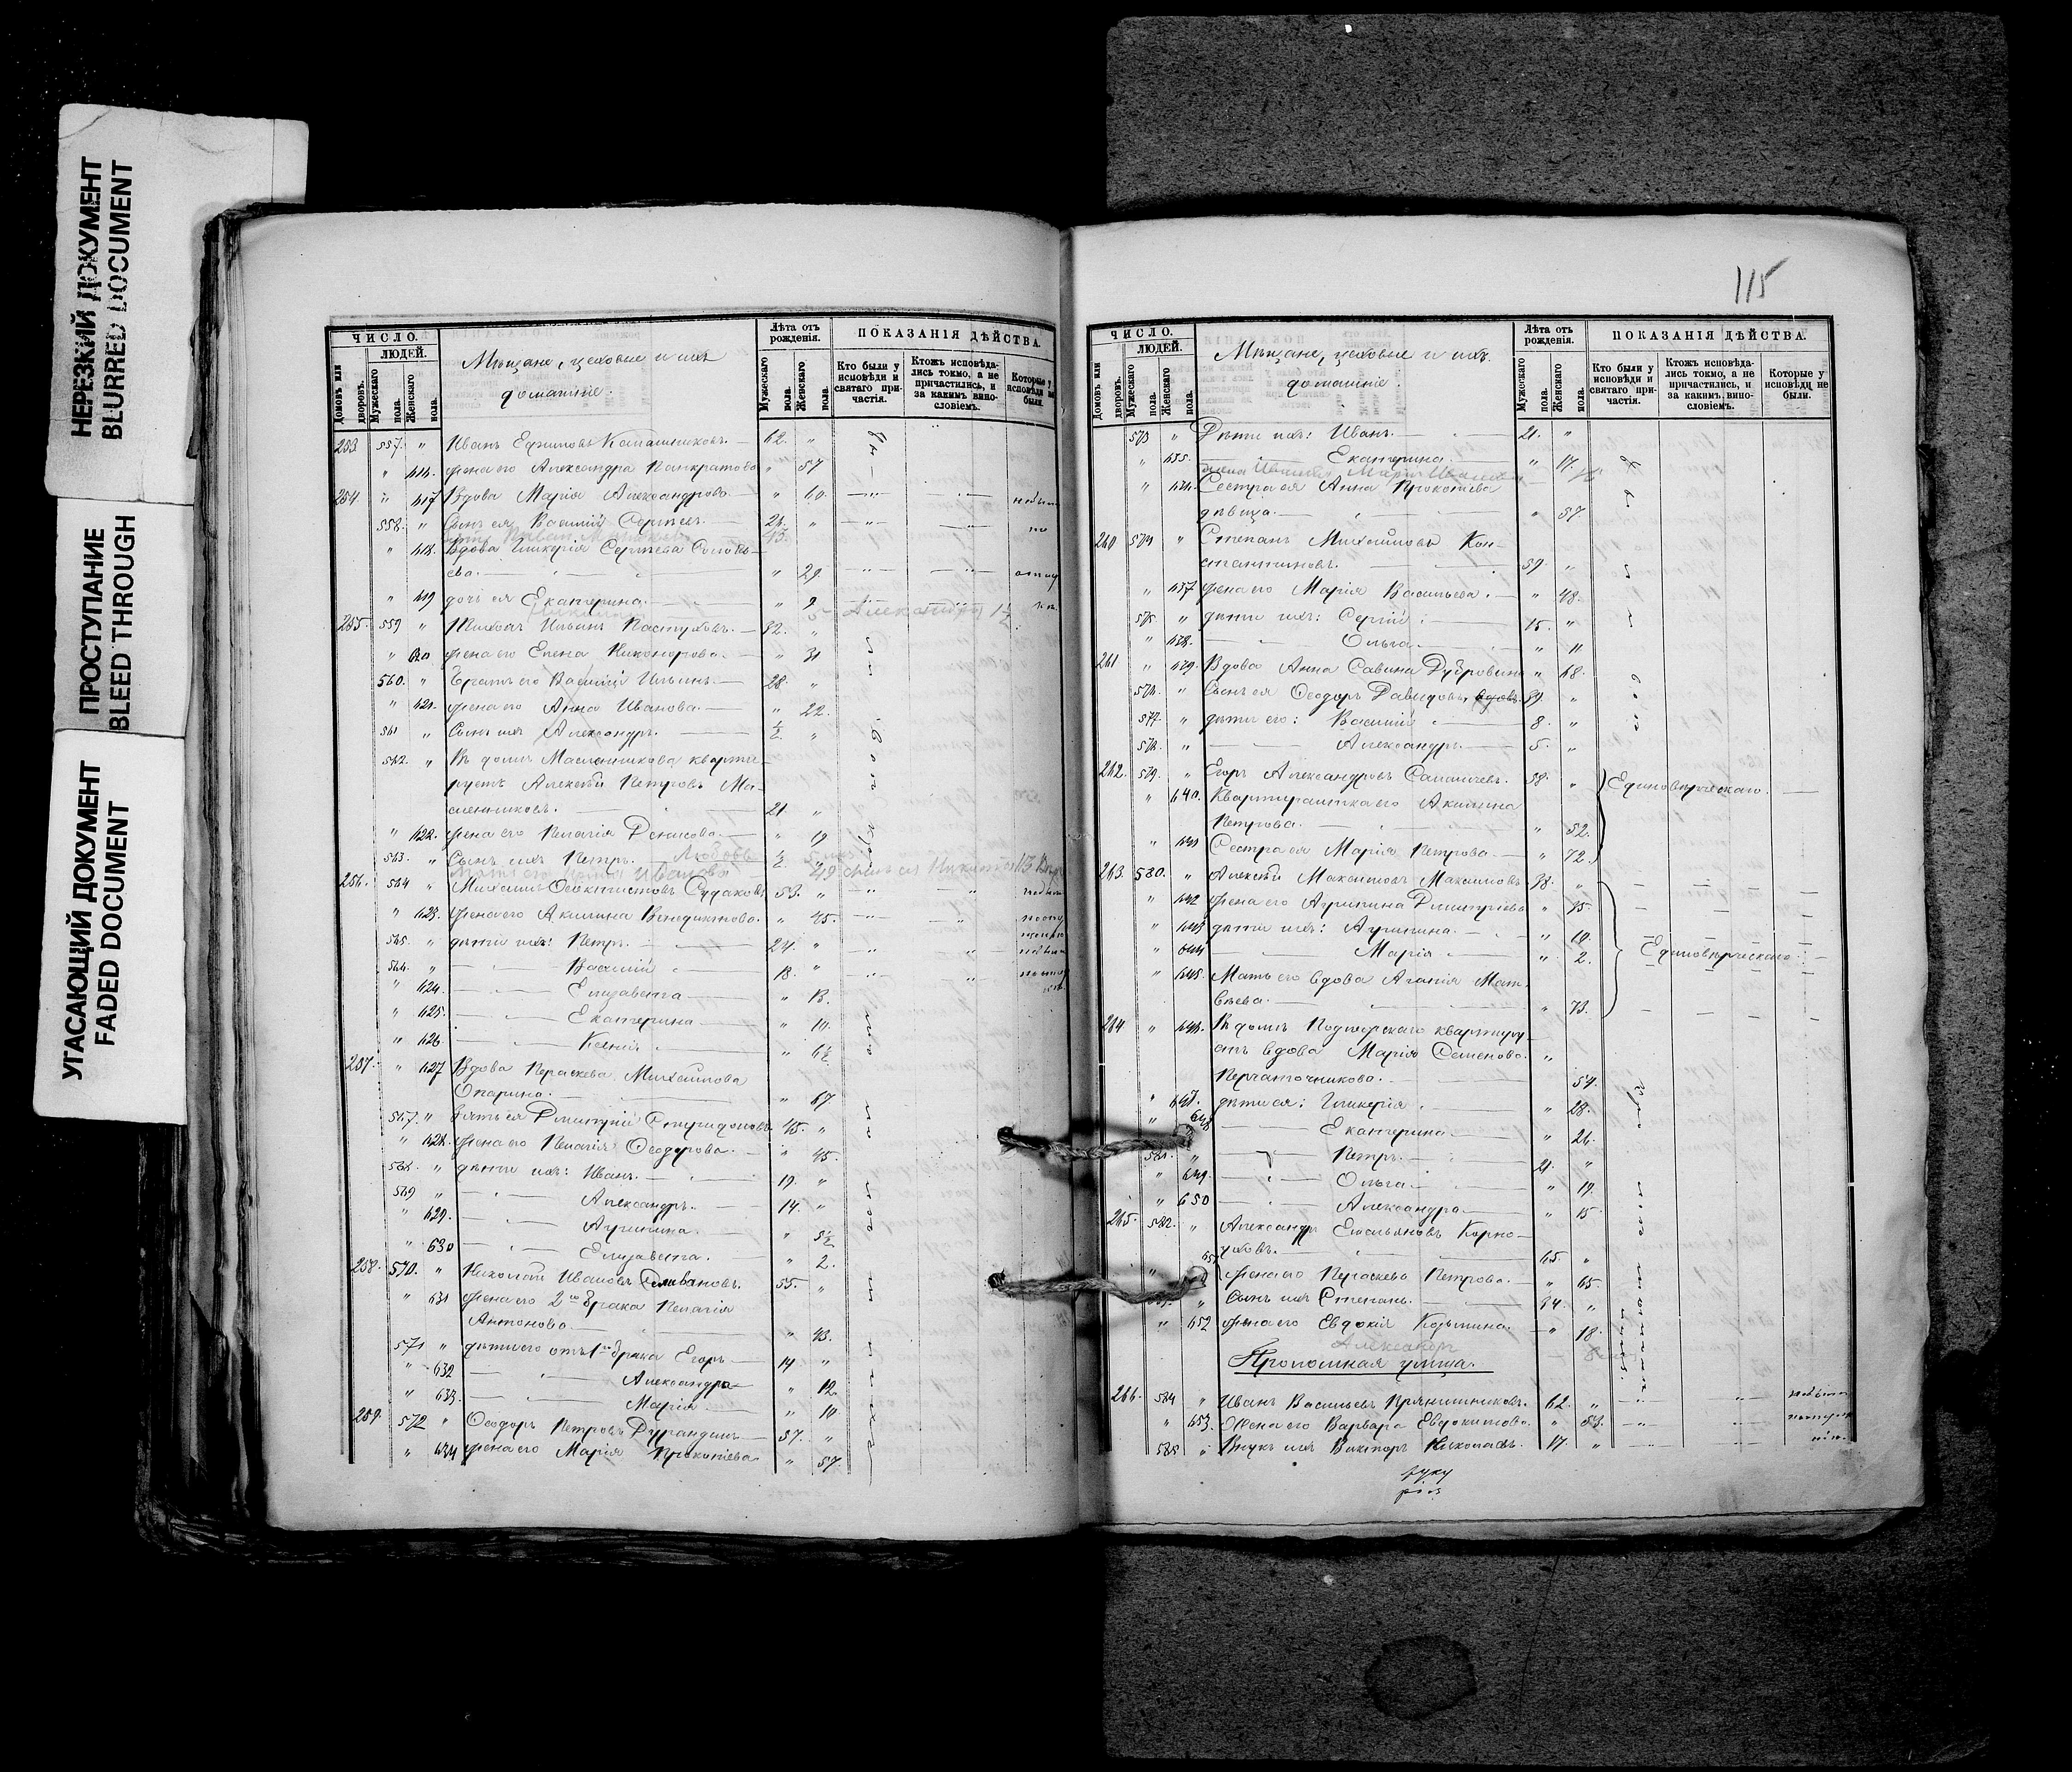 НЕРЕЗКИЙ ДОКУМЕНТ
BLURRED DOCUMENT
ПРОСТУПАНИЕ
BLEED THROUGH
УГАСАЮЩИЙ ДОКУМЕНТ
FADED DOCUMENT
ЧИСЛО.
ЛЮДЕЙ.
Домовъ или дворовъ.
Мужескаго пола.
Женскаго пола.
Мѣщане, цеховые и ихъ
домашніе.
Лѣта отъ рожденія.
Мужескаго пола.
Женскаго пола.
ПОКАЗАНІЯ ДѢЙСТВА.
Кто были у исповѣди и святаго причастія.
Ктожъ исповѣдались токмо, а не причастились, и за какимъ винословіемъ.
Которые у исповѣди не были.
253 557. " Иванъ Ефимовъ Калашниковъ. 62. "
" 616. жена его Александра Панкратова " 57
254 " 617 Вдова Марія Александрова " 60.
558. " Сынъ ея Василій Сергѣевъ. 26. "
" 618. Вдова Гликерія Сергѣева
" 29.
" 619 дочь ея Екатерина " 9
Александра 1½
255. 559 " Ильинъ Пастуховъ. 32. "
" 620 жена его Елена Никонорова. " 31
560. " Братъ его Василій Ильинъ. 28. "
" 621. жена его Анна Иванова. " 22.
561 " Сынъ ихъ Александръ. ½ "
562. " Въ домѣ Масленникова кварти-
руетъ Алексѣй Петровъ Ма-
сленниковъ. 21. "
" 622. жена его Пелагія Денисова. " 19
563. " Сынъ ихъ Петръ. Любовь ½ "
Иванова 49
256. 564 " Михаилъ Ѳеоктистовъ Судаковъ 53. "
" 623. жена его Акилина Венедиктова. " 45.
565. " дѣти ихъ: Петръ. 24. "
566. " Василій 18. "
" 624. Елизавета " 13.
" 625. Екатерина " 10.
" 626. Ксенія " 6½
257. " 627 Вдова Параскева Михайлова
Опарина. " 67.
567. " Зять ея Димитрій Спиридоновъ 45. "
" 628. жена его Пелагія Ѳеодорова. " 45.
568. " дѣти ихъ: Иванъ. 19. "
569 " Александръ. 14. "
" 629. Агрипина. " 5½
" 630 Елизавета. " 2.
258. 570. " Николай Ивановъ Селивановъ. 55. "
" 631 жена его 2го брака Пелагія
Антонова " 43.
571 " дѣти его отъ 1го брака Егоръ 14 "
" 632 Александра " 12.
" 633. Марія " 10
259. 572 " Ѳеодоръ Петровъ Дурандинъ 57. "
" 634 жена его Марія Прокопіева " 57.
115
ЧИСЛО.
ЛЮДЕЙ.
Домовъ или дворовъ.
Мужескаго пола.
Женскаго пола.
Мѣщане, цеховые и ихъ
домашніе.
Лѣта отъ рожденія.
Мужескаго пола.
Женскаго пола.
ПОКАЗАНІЯ ДѢЙСТВА.
Кто были у исповѣди и святаго причастія.
Ктожъ исповѣдались токмо, а не причастились, и за какимъ винословіемъ.
Которые у исповѣди не были.
573 " Дѣти ихъ: Иванъ. 21. "
" 635. Екатерина " 17.
" 636. Сестра ея Анна Прокопіева
дѣвица. " 57.
260 574 " Степанъ Михайловъ Кон-
стантиновъ. 59. "
" 637 жена его Марія Васильева. " 48.
575 " дѣти ихъ: Сергій 15. "
" 638. Ольга " 11
261 " 639. Вдова Анна Савина Дубровина " 68.
576. " Сынъ ея Ѳеодоръ Давыдовъ, вдовъ. 39. "
577. " дѣти его: Василій 8. "
578. " Александръ 5. "
262. 579. " Егоръ Александровъ 58. " Единовѣрческаго.
" 640. Квартирантка его Акилина
Петрова. " 52.
" 641 Сестра ея Марія Петрова " 72.
263. 580. " Алексѣй Максимовъ Максимовъ 38. "
" 642 жена его Агрипина Димитріева " 35.
" 643 дѣти ихъ: Агрипина. " 10.
" 644 Марія " 2. Единовѣрческаго
" 645. Мать его вдова Агапія Мат-
вѣева. " 73.
264 " 646. Въ домѣ Подгорскаго квартиру-
етъ вдова Марія Семенова "
Перчаточникова. 54.
" 647. дѣти ея: Гликерія " 28.
" 648 Екатерина " 26.
581. " Петръ. 21. "
" 649. Ольга " 19.
" 650 Александра " 15.
265. 582. " Александръ Емельяновъ Корно-
уховъ. 65. "
" 651 жена его Параскева Петрова. " 65.
" Сынъ ихъ Степанъ. 34. "
" 652 жена его Евдокія Козьмина. " 18.
Александръ
Проломная улица.
266. 584 " Иванъ Васильевъ Прянишниковъ. 62. "
" 653. Жена его Варвара Евдокимова. " 53.
585 " Внукъ ихъ Викторъ Николаевъ. 17. "